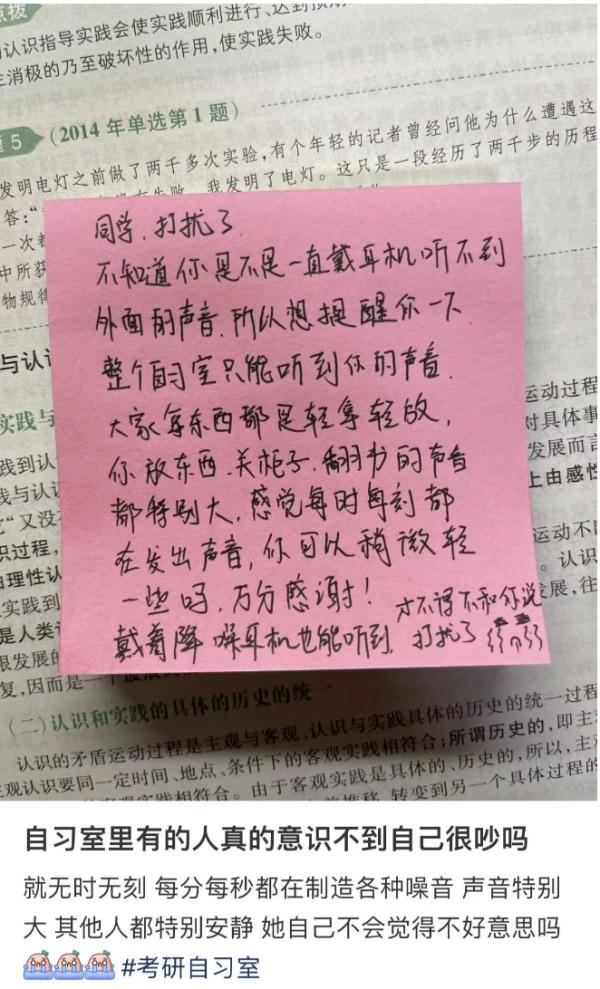 点拨
的认识指导实践会使实践顺利进行、达到预期
生消极的乃至破坏性的作用,使实践失败。
题5 (2014年单选第1题)
发明电灯之前做了两千多次实验,有个年轻的记者曾经问他为什么遭遇这
答:“ 我发明了电灯。这只是一段经历了两千步的历程
一次都
中所获
物规律
同学.打扰了
不知道你是不是一直戴耳机听不到
外面的声音.所以想提醒你一下
整个自习室只能听到你的声音.
大家拿东西都是轻拿轻放,
你放东西.关柜子.翻书的声音
都特别大,感觉每时每刻都
在发出声音,你可以稍微轻
一些吗,万分感谢!
戴着降噪耳机也能听到.才不得不和你说
打扰了
与认识
实践与
践到认
践与认识
”又没
识过程,
由理性认
实践到
是人类认
限发展的
复,因而是一
运动过程
对具体事
发展而言
上由感性
运动不断
。认识
发展,往
(二)认识和实践的具体的历史的统一
认识的矛盾运动过程是主观与客观、认识与实践具体的历史的统一过程
观认识要同一定时间、地点、条件下的客观实践相符合;所谓历史的,即主观
客观实践相符合。由于客观实践是具体的、历史的,所以,主观
推移、转变到另一个具体过程的
自习室里有的人真的意识不到自己很吵吗
就无时无刻 每分每秒都在制造各种噪音 声音特别
大 其他人都特别安静 她自己不会觉得不好意思吗
#考研自习室